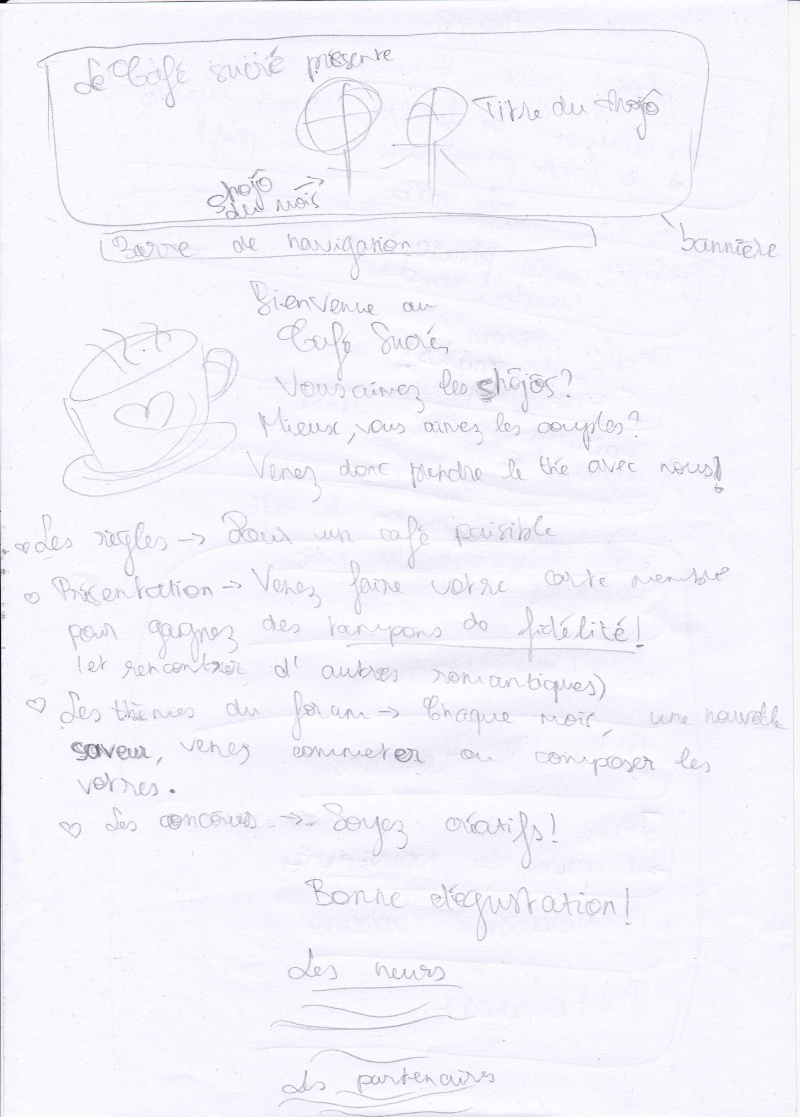 Le Café Sucré présente
Titre du shojô
shojô
du mois
bannière
Barre de navigation
Bienvenue au
Café Sucré,
Vous aimez les shôjôs?
Mieux, vous aimez les couples?
Venez donc prendre le thé avec nous!
Les règles → Pour un café paisible
Présentation → Venez faire votre carte membre
pour gagnez des tampons de fidélité!
(et rencontrer d'autres romantiques)
Les thèmes du forum → Chaque mois, une nouvelle
saveur, venez commeter ou composer les
votres.
Les concours → Soyez créatifs!
Bonne dégustation!
Les news
Les partenaires